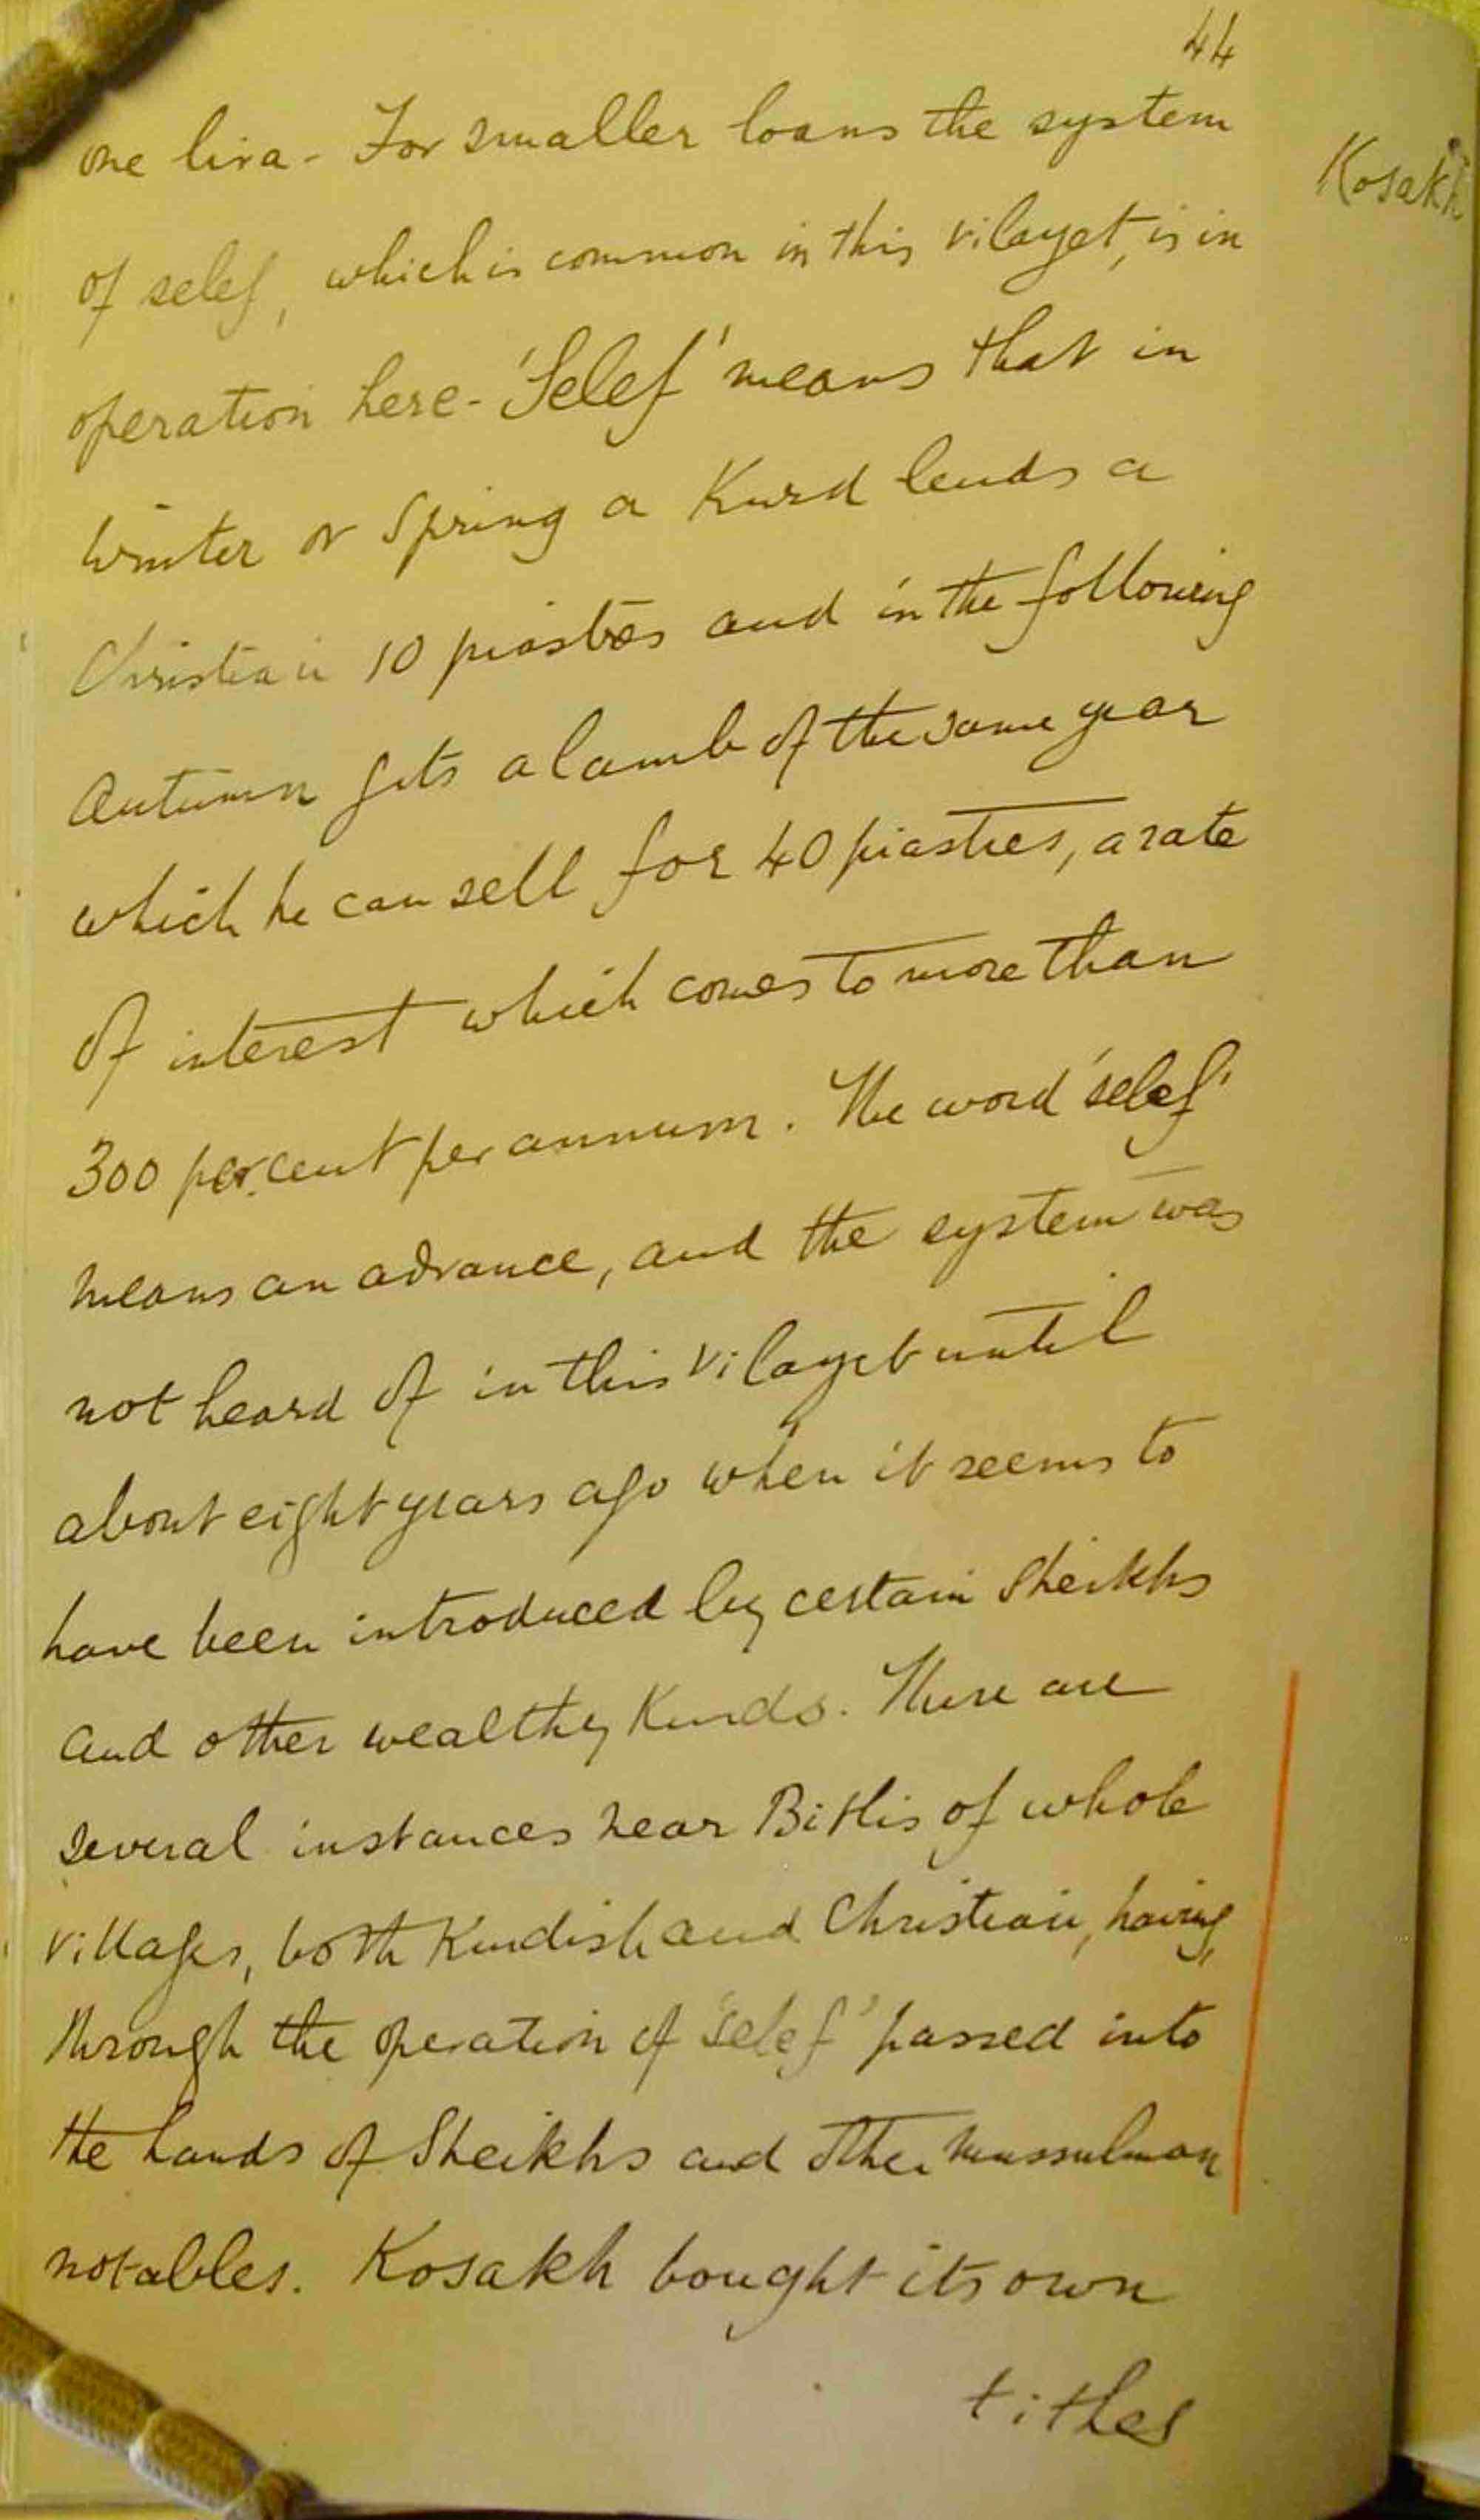 44
Kosakh
one lira - For smaller loans the system
of selef, which is common in this vilayet, is in
operation here - 'Selef' means that in
winter or Spring a Kurd lends a
Christian 10 piastres and in the following
Autumn gets a lamb of the same year
which he can sell for 40 piastres, a rate
of interest which comes to more than
300 per cent per annum. The word 'selef'
means an advance, and the system was
not heard of in this vilayet until
about eight years ago when it seems to
have been introduced by certain Sheikhs
and other wealthy Kurds. There are
several instances near Bitlis of whole
villages, both Kurdish and Christian, having,
through the operation of 'selef' passed into
the hands of Sheikhs and other Mussulman
notables. Kosakh bought its own
tithes